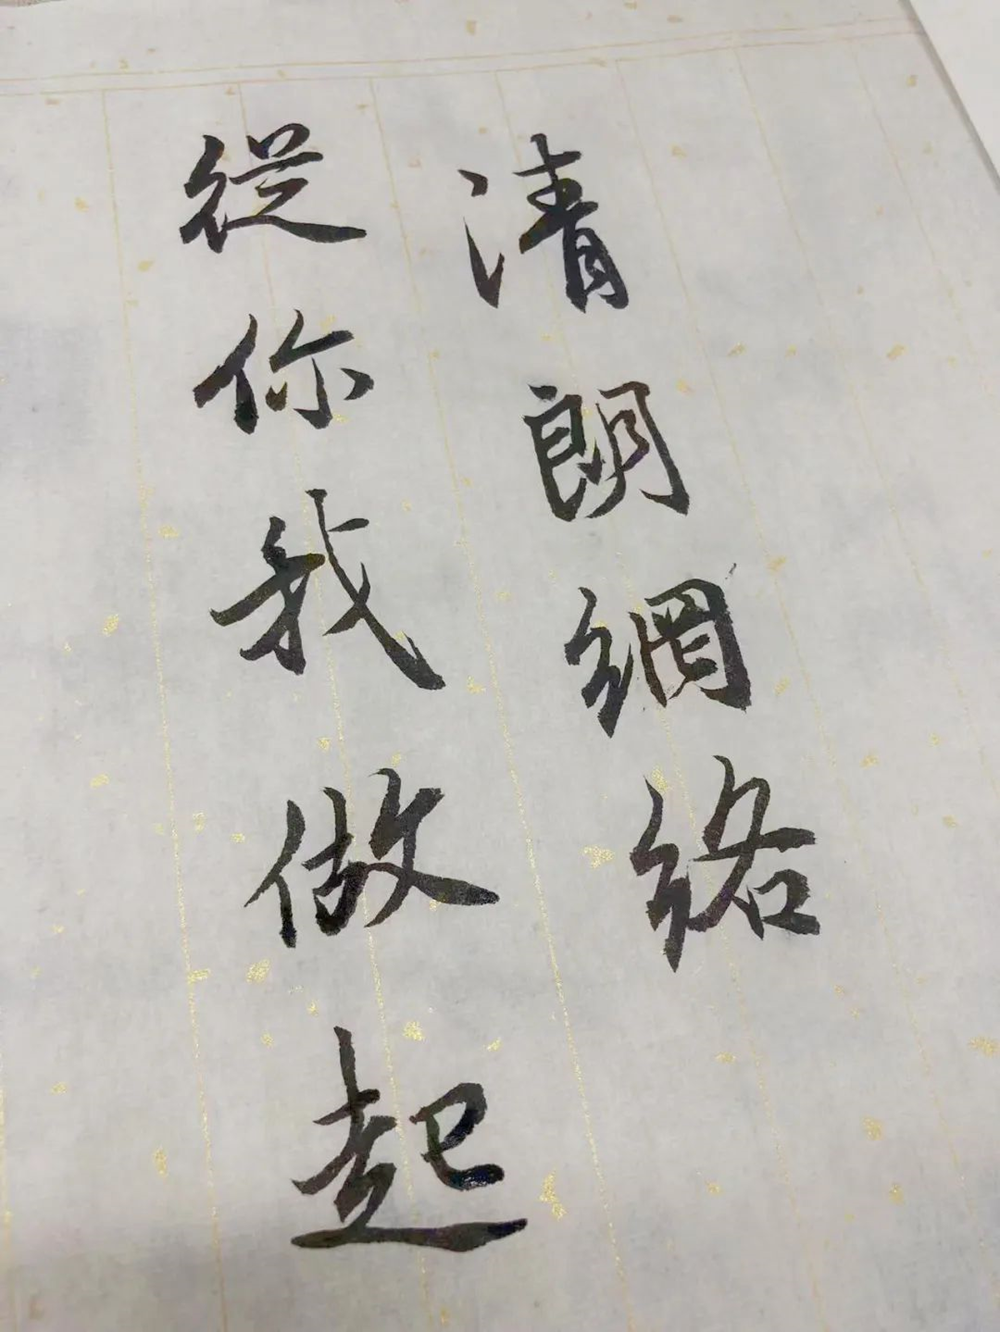 清朗網絡
從你我做起